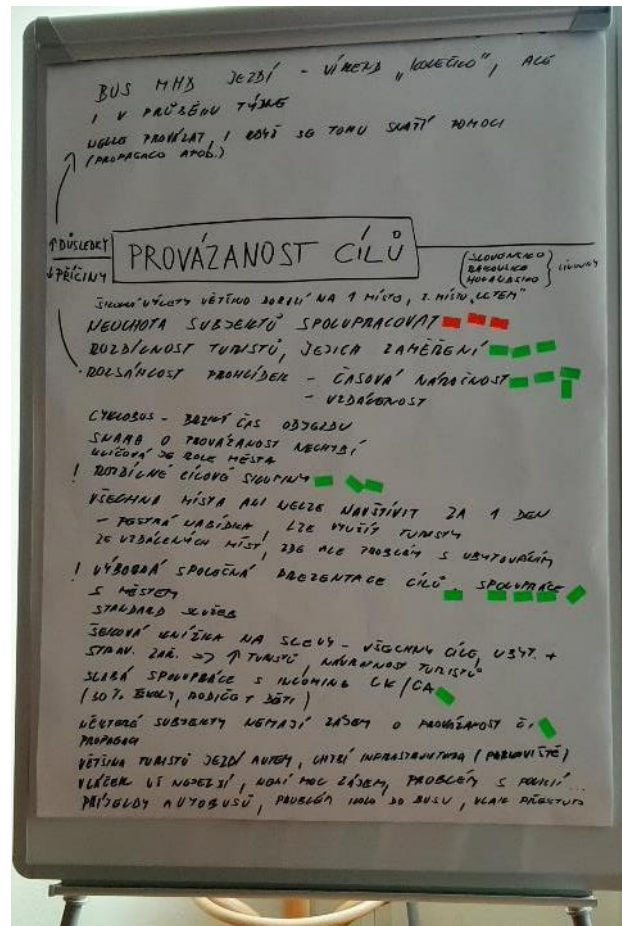 BUS MHD JEZDÍ - VÍKEND „KOLEČKO", ALE
I V PRŮBĚHU TÝDNE
NELZE PROVÁZAT, I KDYŽ SE TOMU SNAŽÍ POMOCI
(PROPAGACE APOD.)
↑ DŮSLEDKY
↓ PŘÍČINY
PROVÁZANOST CÍLŮ
(SLOVENSKO
RAKOUSKO
ŠKOLNÍ VÝLETY VĚTŠINO DORAZÍ NA 1 MÍSTO, 2. MÍSTO „LETEM"
NEOCHOTA SUBJEKTŮ SPOLUPRACOVAT
ROZDÍLNOST TURISTŮ, JEJICH ZAMĚŘENÍ
ROZSÁHLOST PROHLÍDEK - ČASOVÁ NÁROČNOST
- VZDÁLENOST
CYKLOBUS - BRZKÝ ČAS ODJEZDU
SNAHA O PROVÁZANOST NECHYBÍ
KLÍČOVÁ JE ROLE MĚSTA
! ROZDÍLNÉ CÍLOVÉ SKUPINY
VŠECHNA MÍSTA ALE NELZE NAVŠTÍVIT ZA 1 DEN
- PESTRÁ NABÍDKA, LZE VYUŽÍT TURISTY
ZE VZDÁLENÝCH MÍST, ZDE ALE PROBLÉM S UBYTOVÁNÍM
! VÝBORNÁ SPOLEČNÁ PREZENTACE CÍLŮ, SPOLUPRÁCE
S MĚSTEM
STANDARD SLUŽEB
ŠEKOVÁ KNÍŽKA NA SLEVY - VŠECHNY CÍLE, UBYT. +
STRAV. ZAŘ. => ↑ TURISTŮ, NÁVRATNOST TURISTŮ
SLABÁ SPOLUPRÁCE S INCOMING CK/CA
(50% ŠKOLY, RODIČE + DĚTI)
NĚKTERÉ SUBJEKTY NEMAJÍ ZÁJEM O PROVÁZANOST ČI
PROPAGACI
VĚTŠINA TURISTŮ JEZDÍ AUTEM, CHYBÍ INFRASTRUKTURA (PARKOVIŠTĚ)
VLÁČEK UŽ NEJEZDÍ, NENÍ MOC ZÁJEM, PROBLÉM S POLICIÍ...
PŘÍJEZDY AUTOBUSŮ, PROBLÉM KOLO DO BUSU, VLAK PŘESTUP